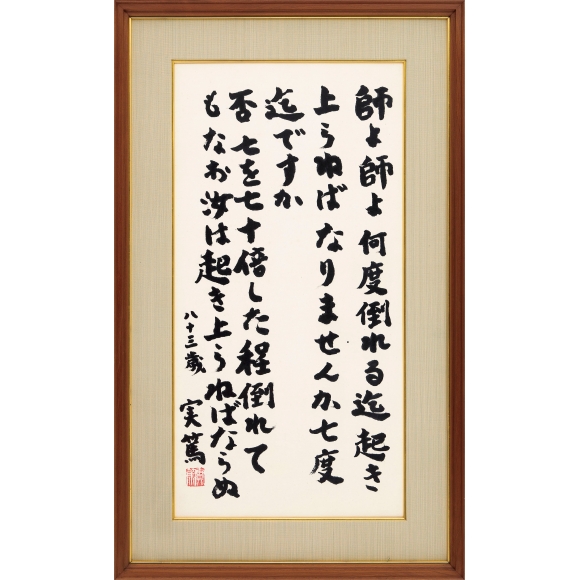 師よ師よ何度倒れる迄起き
上らねばなりませんか七度
迄ですか
否七を七十倍した程倒れて
もなお汝は起き上らねばならぬ
八十三歳
実篤